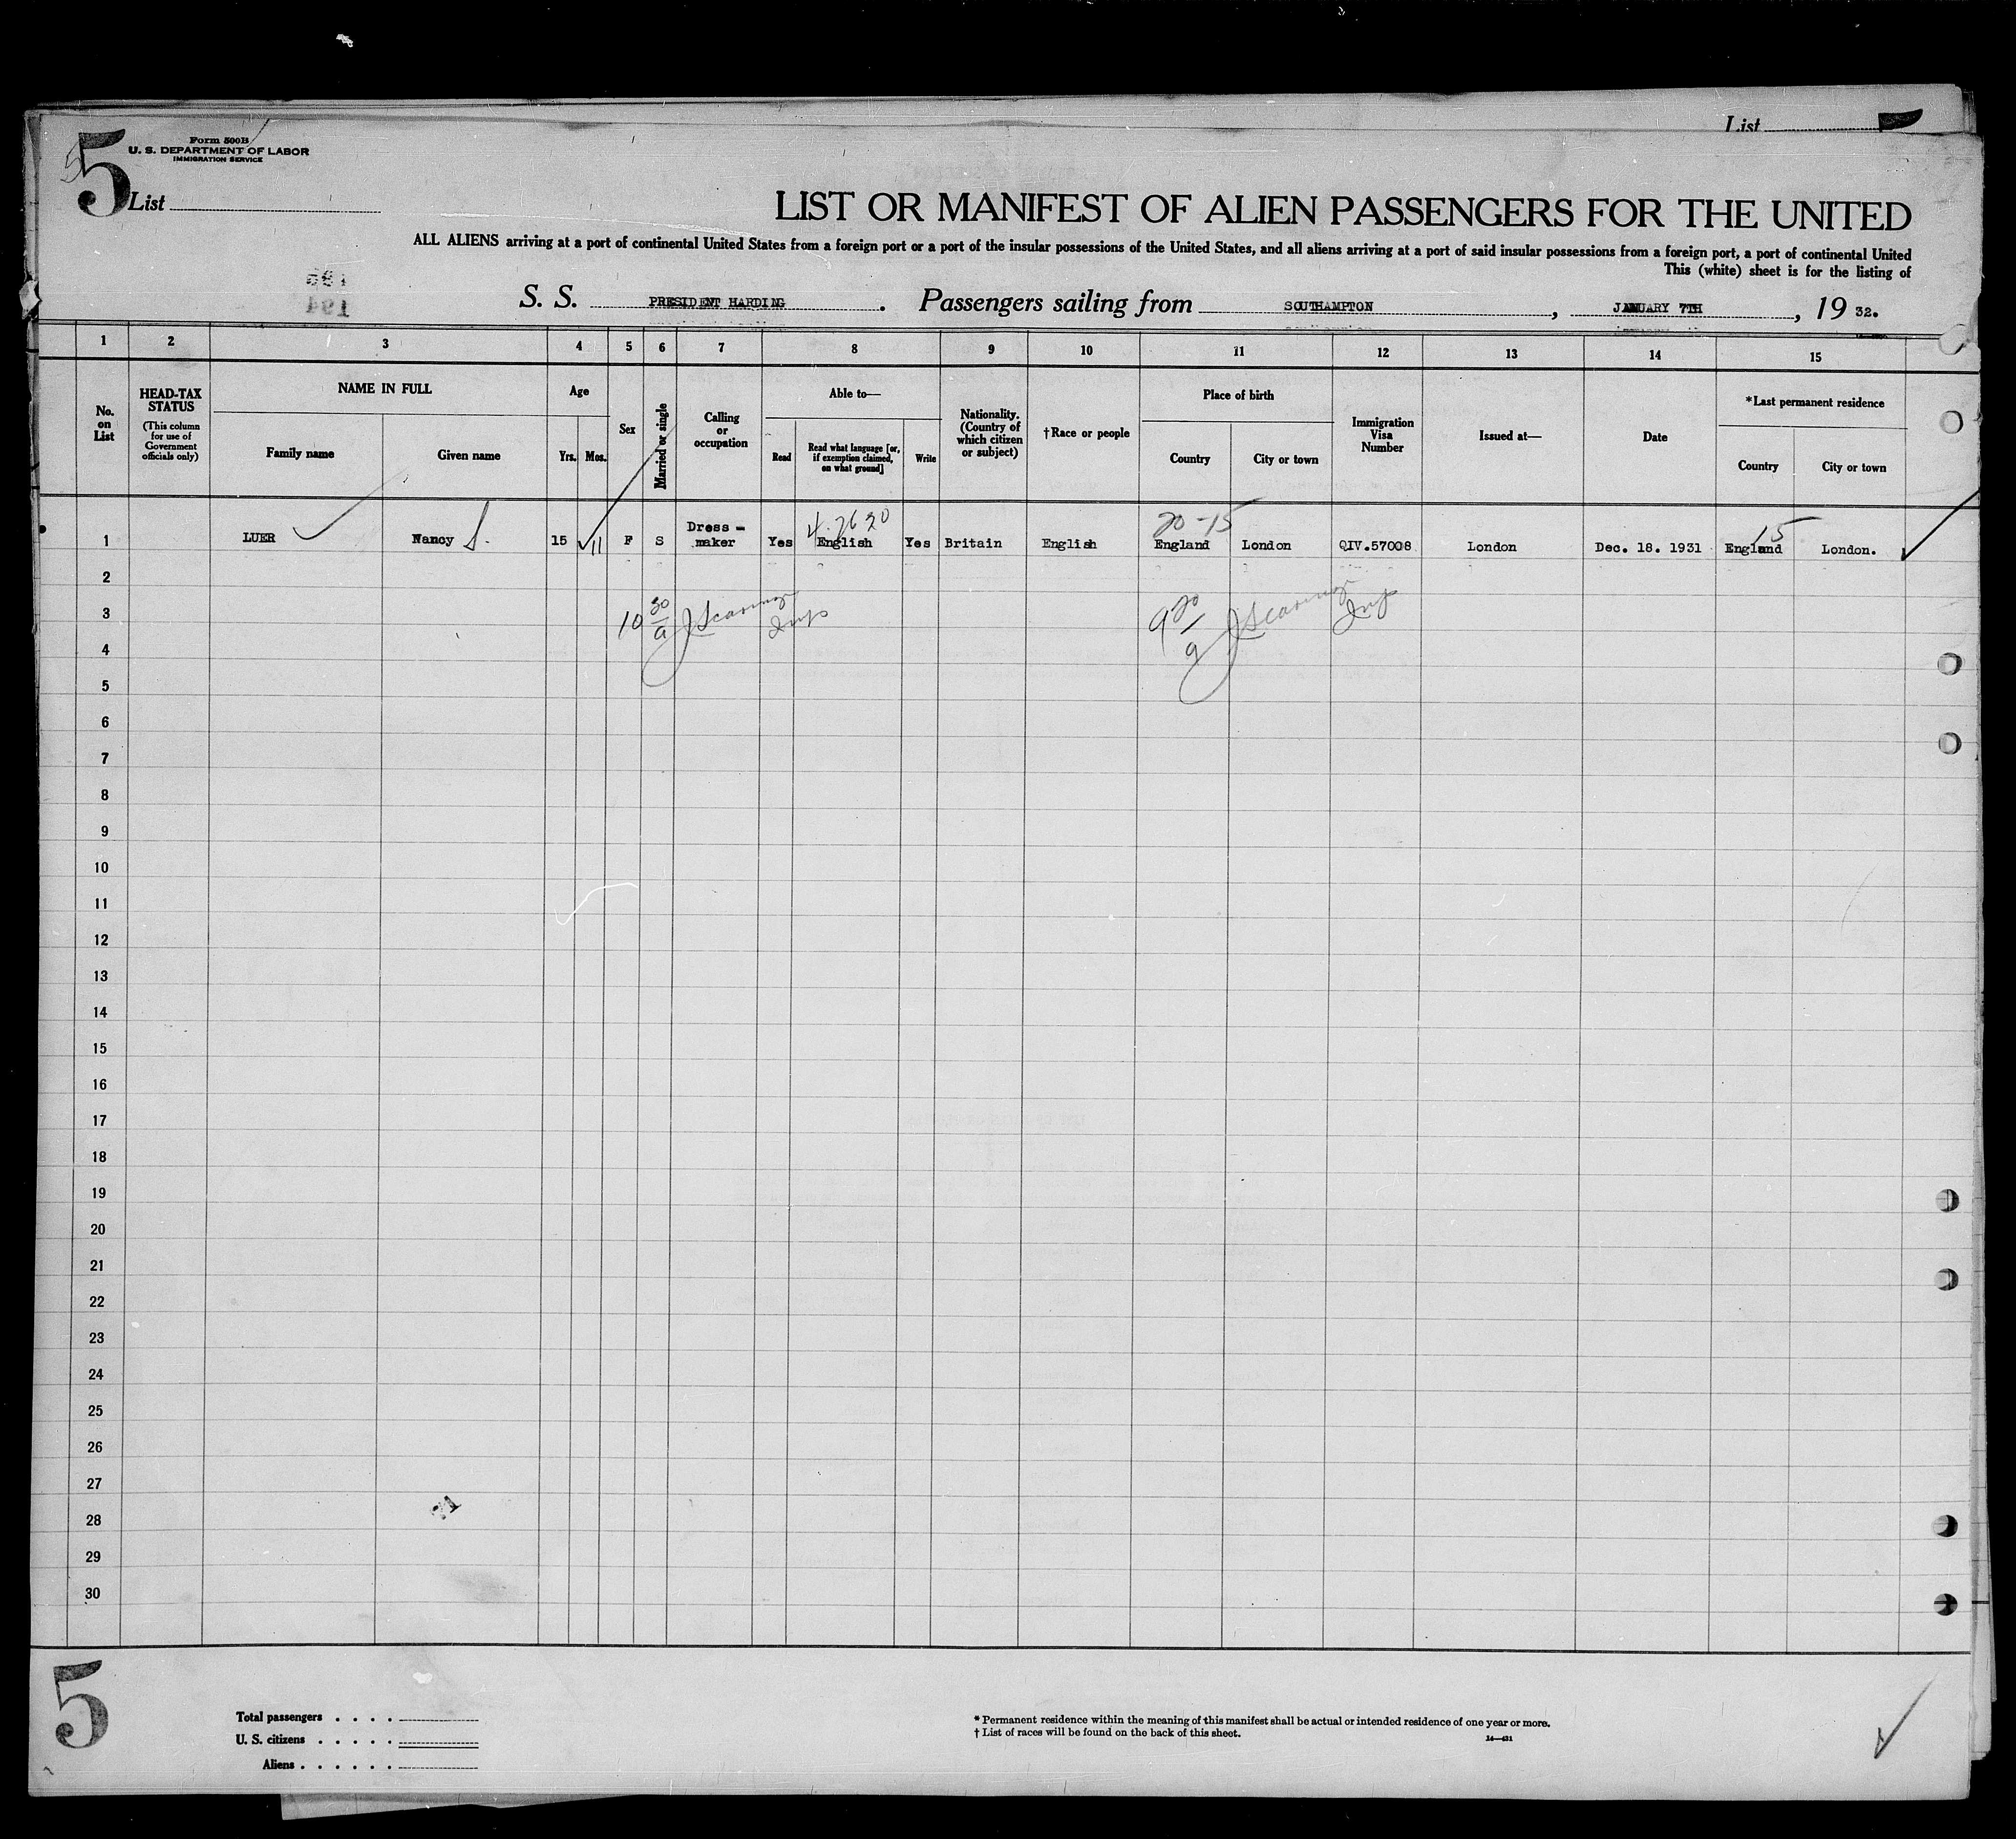 List
5
Form 500B
U. S. DEPARTMENT OF LABOR
IMMIGRATION SERVICE
List
LIST OR MANIFEST OF ALIEN PASSENGERS FOR THE UNITED
ALL ALIENS arriving at a port of continental United States from a foreign port or a port of the insular possessions of the United States, and all aliens arriving at a port of said insular possessions from a foreign port, a port of continental United
This (white) sheet is for the listing of
S. S. PRESIDENT HARDING. Passengers sailing from SOUTHAMPTON, JANUARY 7TH, 19 32.
1 2 3 4 5 6 7 8 9 10 11 12 13 14 15
No. on List
HEAD-TAX STATUS
(This column for use of Government officials only)
NAME IN FULL
Family name
Given name
Age
Yrs. Mos.
Sex
Married or single
Calling or occupation
Able to—
Read
Read what language [or, if exemption claimed, on what ground]
Write
Nationality. (Country of which citizen or subject)
†Race or people
Place of birth
Country
City or town
Immigration Visa Number
Issued at—
Date
*Last permanent residence
Country
City or town
20-15
15
1 LUER Nancy S. 15 11 F S Dress-maker Yes English Yes Britain English England London QIV.57008 London Dec. 18. 1931 England London.
2
3
10 30/a
4
5
6
7
8
9
10
11
12
13
14
15
16
17
18
19
20
21
22
23
24
25
26
27
28
29
30
5
Total passengers . . . .
U. S. citizens . . . . .
Aliens . . . . . .
* Permanent residence within the meaning of this manifest shall be actual or intended residence of one year or more.
† List of races will be found on the back of this sheet.
14—421